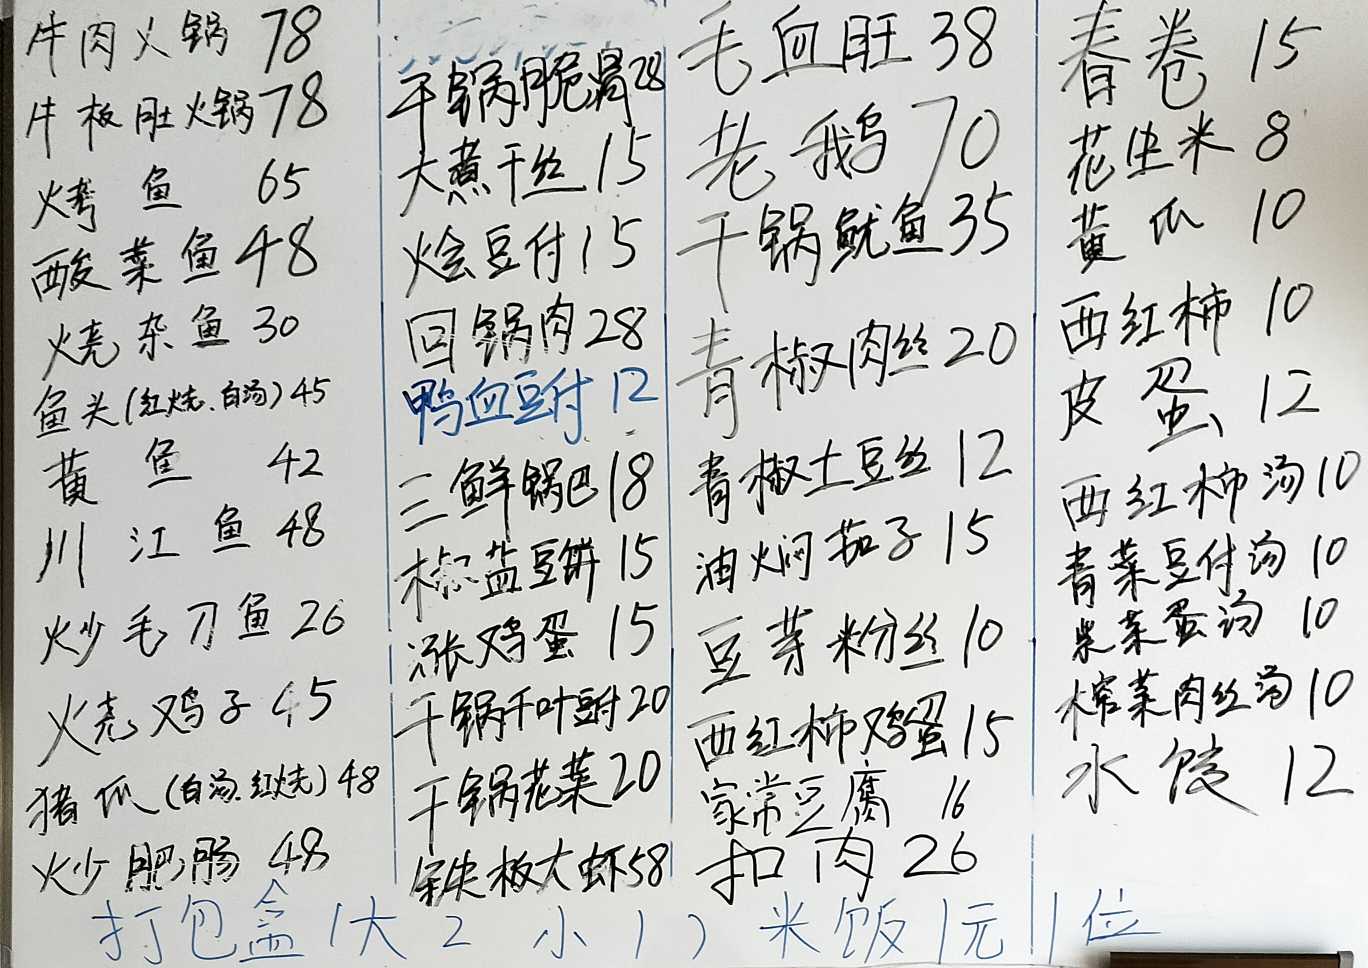 牛肉火锅 78
牛板肚火锅 78
烤鱼 65
酸菜鱼 48
烧杂鱼 30
鱼头(红烧.白汤) 45
黄鱼 42
川江鱼 48
炒毛刀鱼 26
火烧鸡子 45
猪爪(白汤.红烧) 48
炒肥肠 48
干锅脆骨 28
大煮干丝 15
烩豆付 15
回锅肉 28
鸭血豆付 12
三鲜锅巴 18
椒盐豆饼 15
涨鸡蛋 15
干锅千叶豆付 20
干锅花菜 20
铁板大虾 58
毛血旺 38
老鹅 70
干锅鱿鱼 35
青椒肉丝 20
青椒土豆丝 12
油焖茄子 15
豆芽粉丝 10
西红柿鸡蛋 15
家常豆腐 16
扣肉 26
春卷 15
花生米 8
黄瓜 10
西红柿 10
皮蛋 12
西红柿汤 10
青菜豆付汤 10
紫菜蛋汤 10
榨菜肉丝汤 10
水饺 12
打包盒(大2 小1) 米饭1元1位